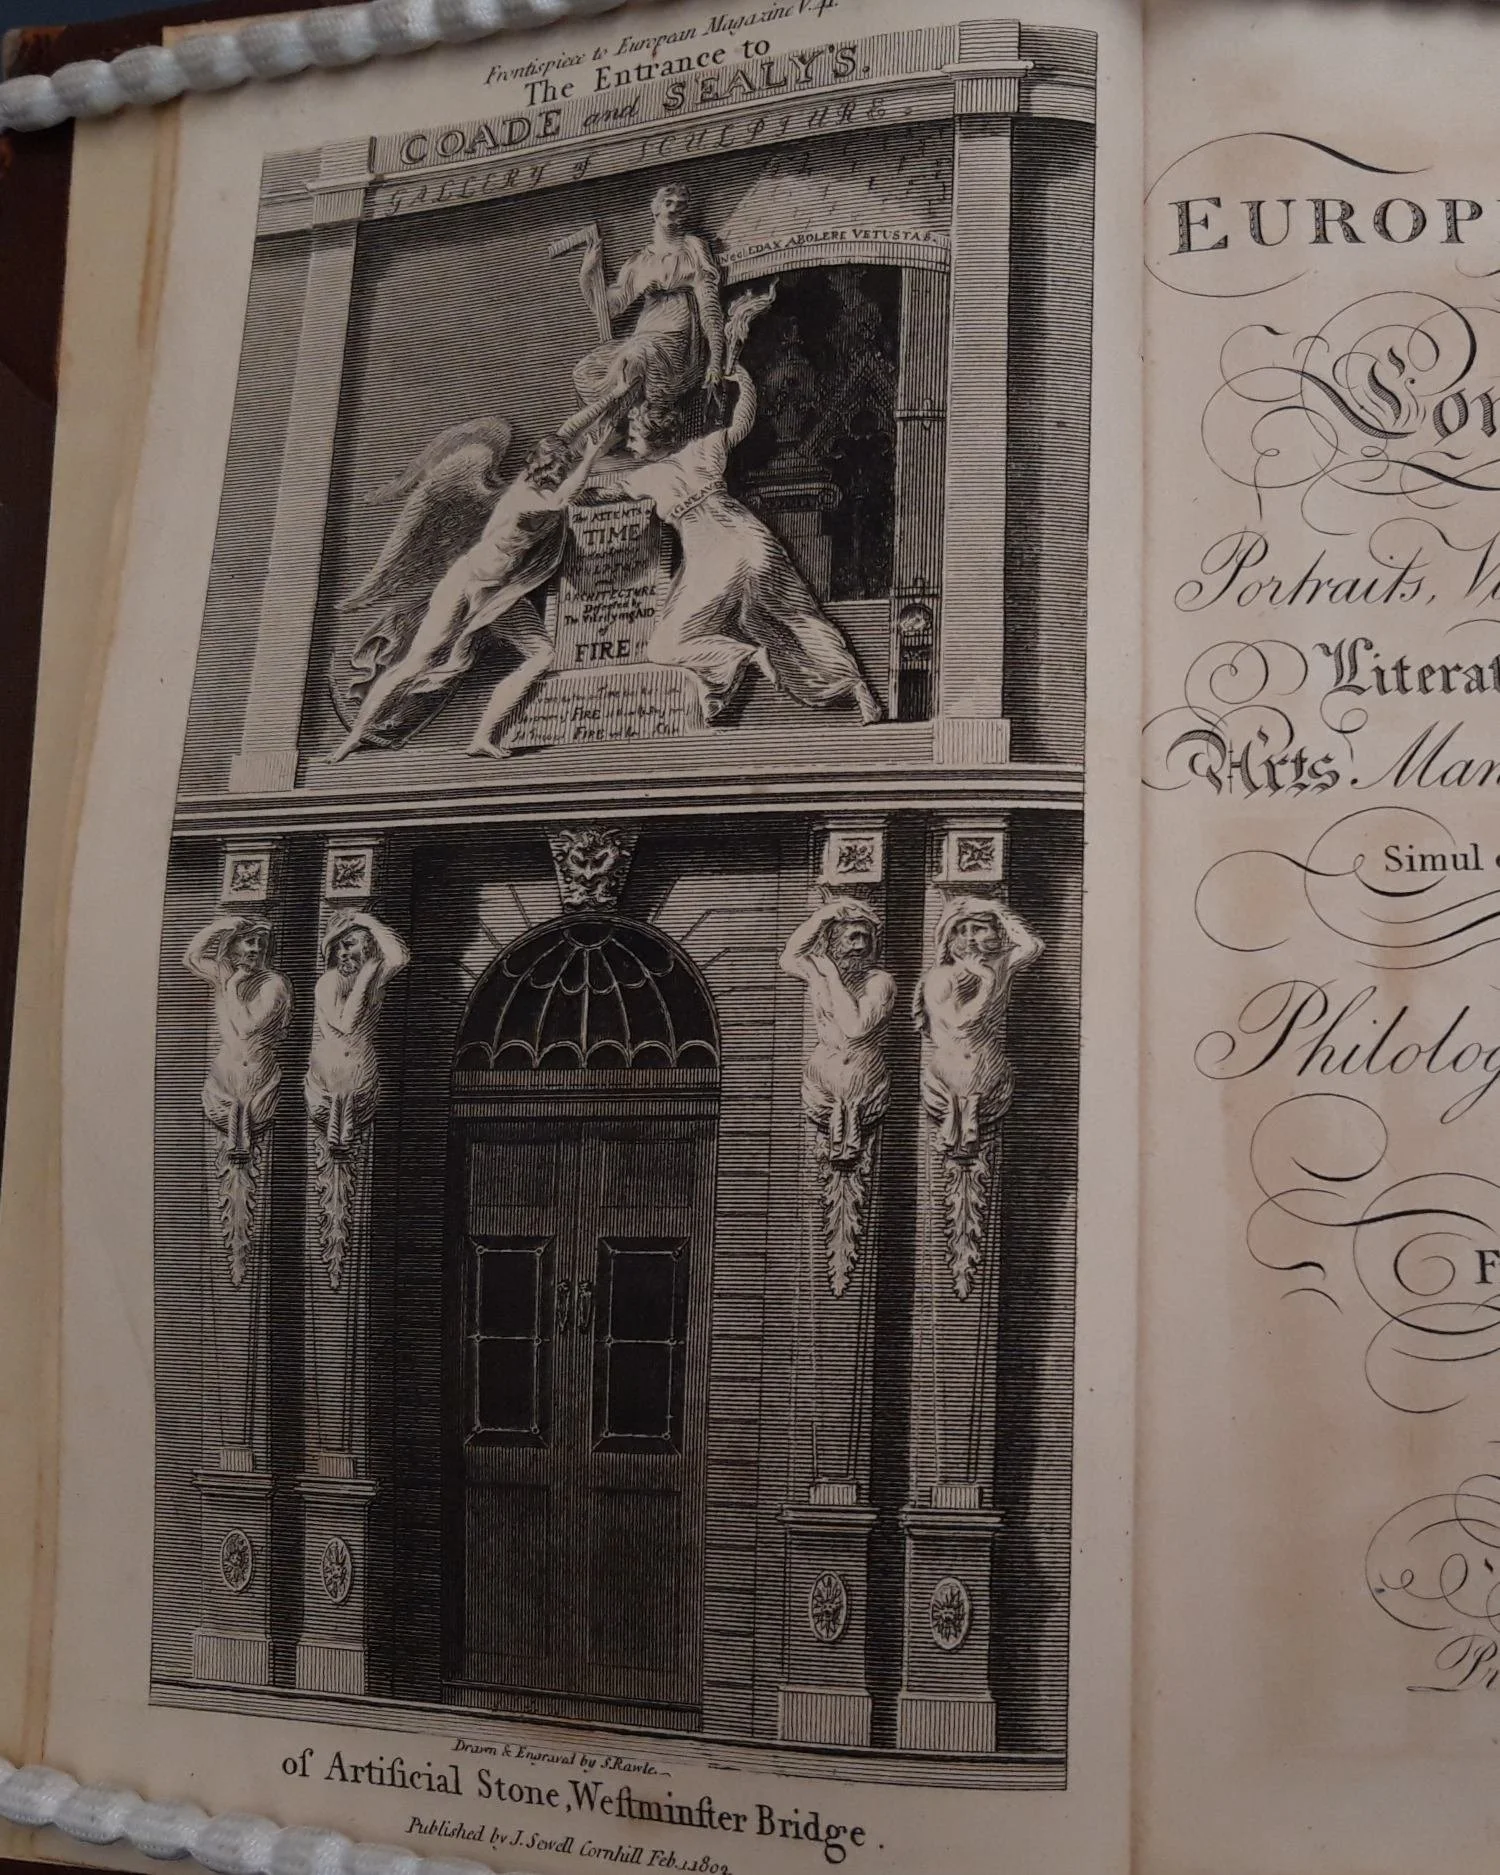 Frontispiece to European Magazine V. 41.
The Entrance to
COADE and SEALY'S.
GALLERY of SCULPTURE.
Nec EDAX ABOLERE VETUSTAS.
The ATTEMTS of
TIME
SCULPTURE
and
ARCHITECTURE
Defeated by
The Vitrifying AID
of
FIRE !!!
TIME
FIRE
FIRE
Drawn & Engraved by S. Rawle.
of Artificial Stone, Weſtminſter Bridge.
Published by J. Sewell Cornhill Feb. 1. 1802
EUROP
Portraits,
Literat
Arts. Man
Simul
Philolog